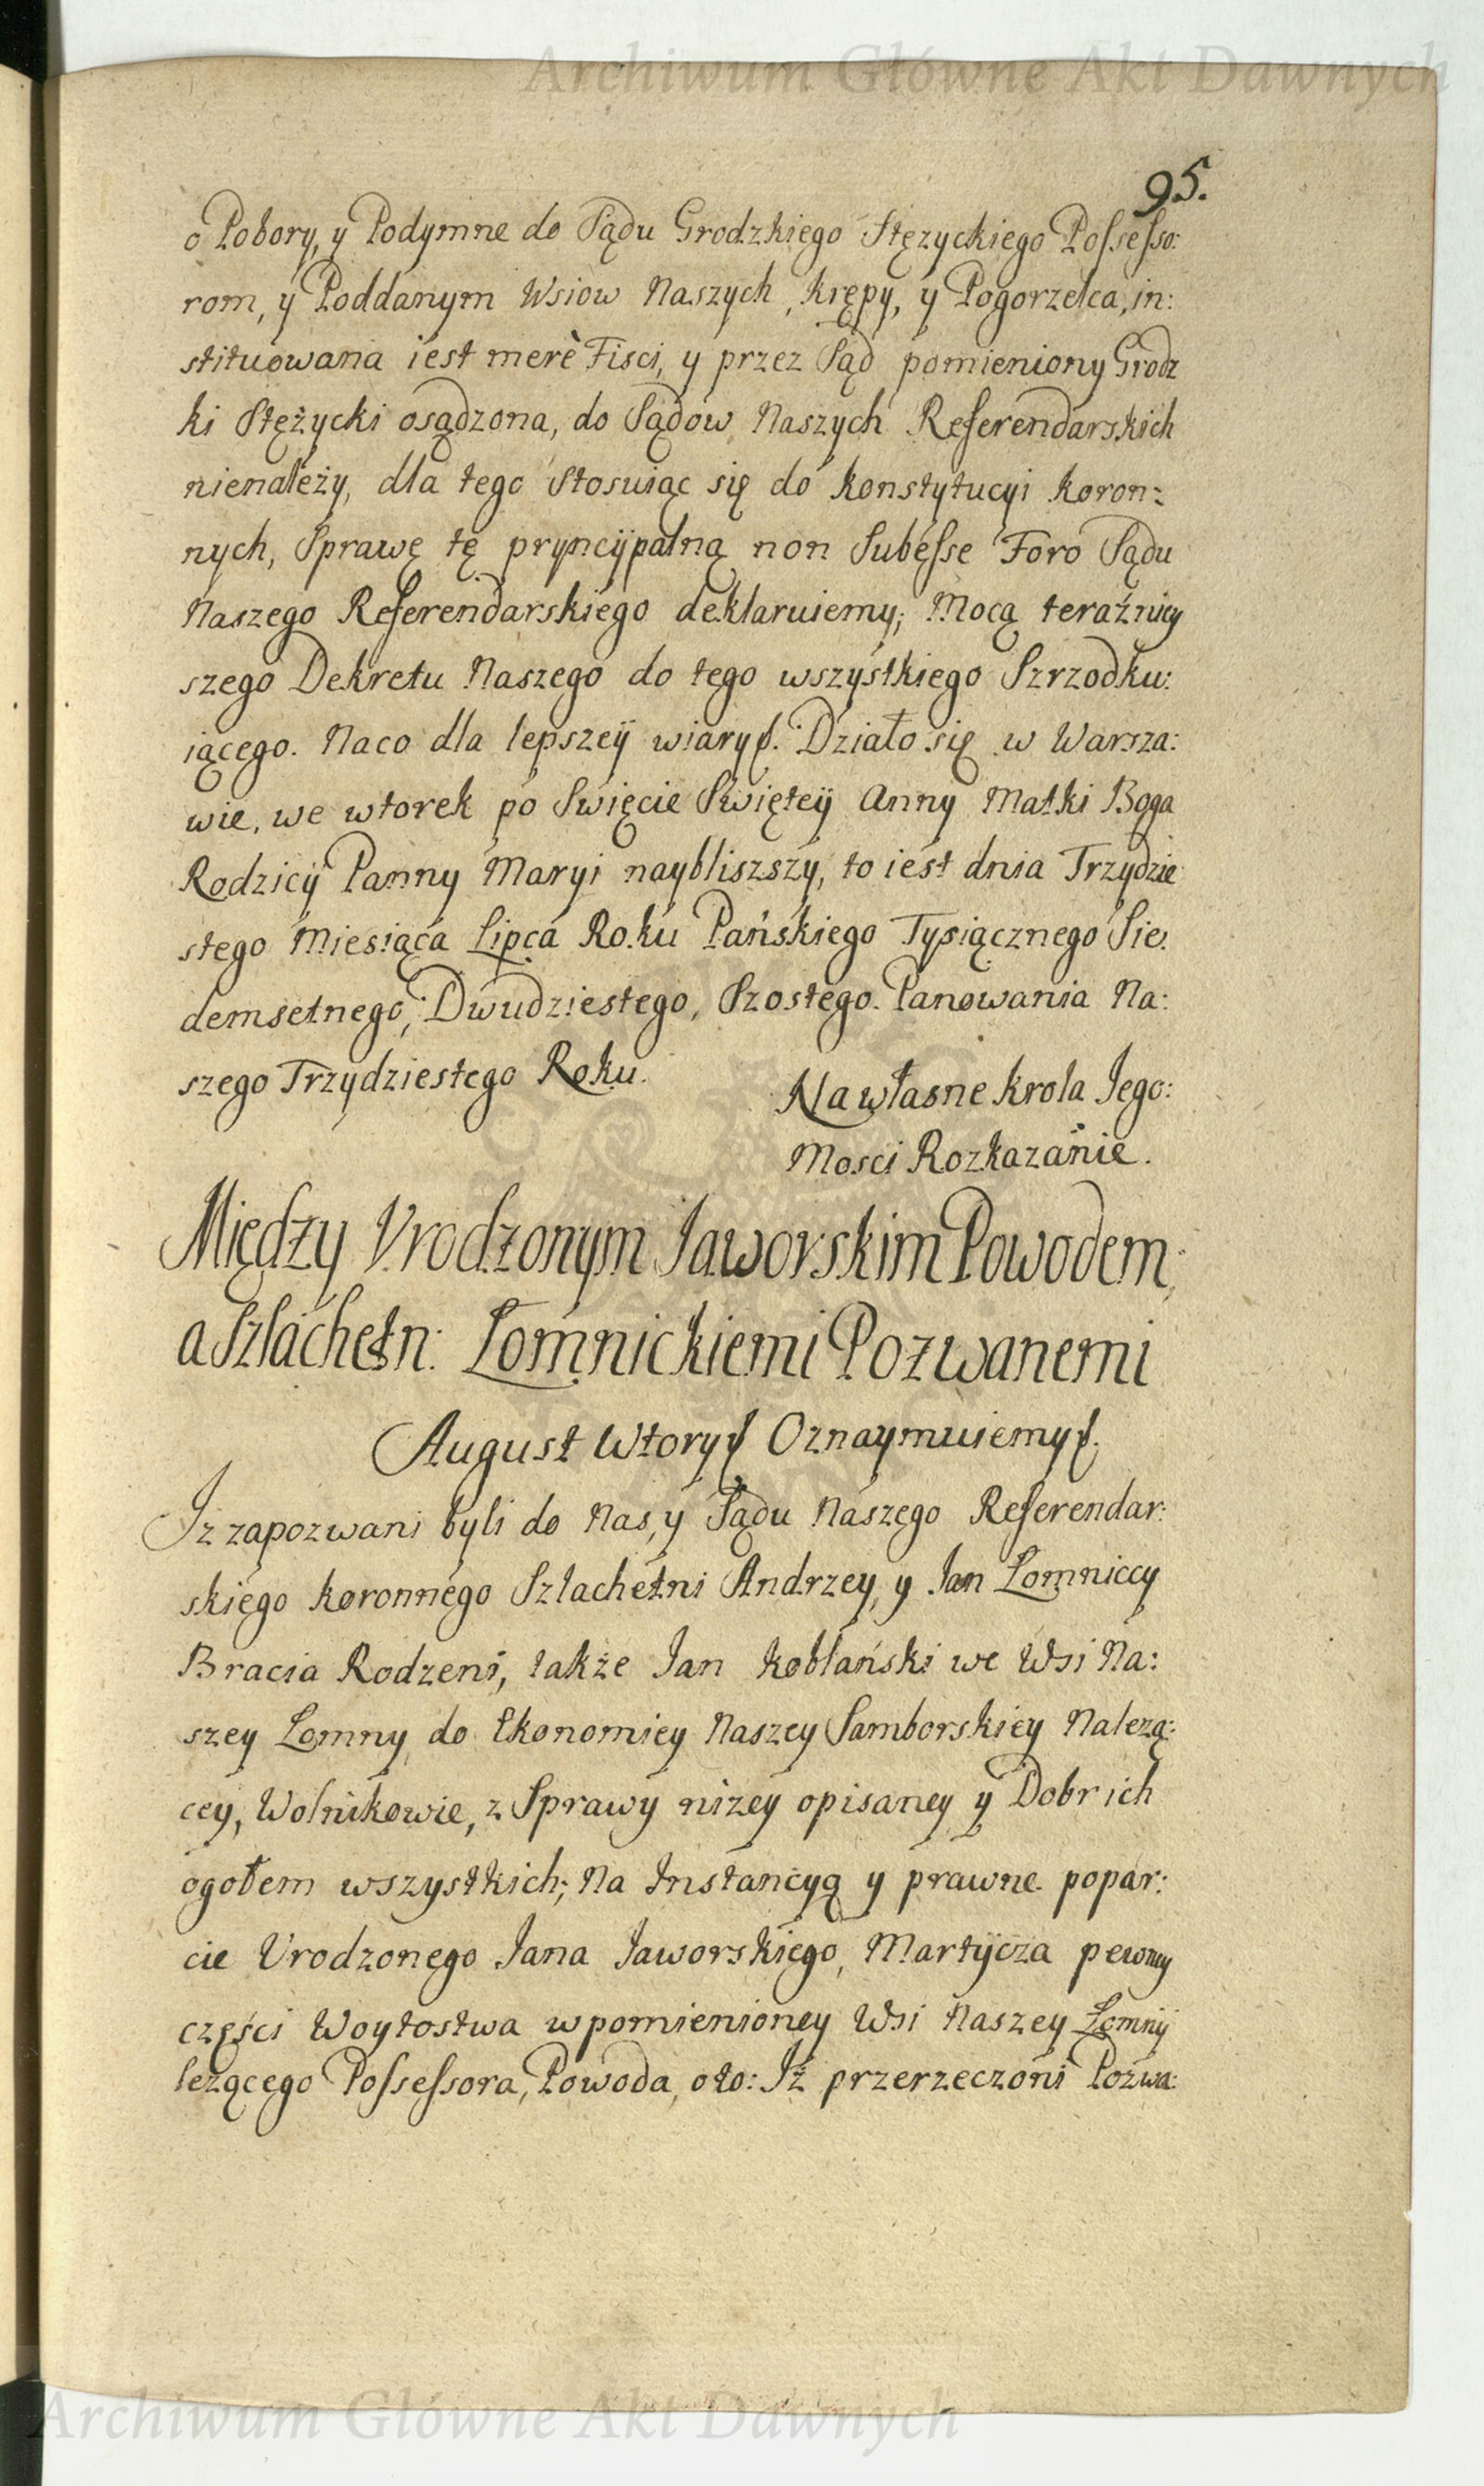 Archiwum Główne Akt Dawnych
95.
o Pobory, y Podymne do Sądu Grodzkiego Stęzyckiego Possesso:
rom, y Poddanym Wsiow Naszych, Krępy, y Pogorzelca, in:
stituowana iest merè Fisci, y przez Sąd pomieniony Grodz
ki Stężycki osądzona, do Sądow Naszych Referendarskich
nienależy, dla tego Stosuiąc się do Konstytucyi Koron:
nych, Sprawę tę pryncypalną non Subesse Foro Sądu
Naszego Referendarskiego deklaruiemy; Mocą teraźniey
szego Dekretu Naszego do tego wszystkiego Szrzodku:
iącego. Naco dla lepszey wiary. Działo się w Warsza:
wie, we wtorek po Swięcie Swiętey Anny Matki Boga
Rodzicy Panny Maryi naybliszszy, to iest dnia Trzydzie
stego Miesiąca Lipca Roku Pańskiego Tysiącznego Sie:
demsetnego, Dwudziestego, Szostego. Panowania Na:
szego Trzydziestego Roku.
Na własne Krola Jego:
Mosci Rozkazanie.
Między Vrodzonym Jaworskim Powodem,
a Szlachetn: Łomnickiemi Pozwanemi
August Wtory Oznaymuiemy
Iz zapozwani byli do Nas, y Sądu Naszego Referendar:
skiego Koronnego Szlachetni Andrzey, y Jan Łomniccy
Bracia Rodzeni, także Jan Kobłański we Wsi Na:
szey Łomny do Ekonomiey Naszey Samborskiey Nalezą:
cey, Wolnikowie, z Sprawy niżey opisaney y Dobr ich
ogołem wszystkich; Na Instancyą y prawne popar:
cie Vrodzonego Jana Jaworskiego, Martycza pewney
części Woytostwa w pomienioney Wsi Naszey Łomny
leżącego Possessora, Powoda, oto: Iż przerzeczoni Pozwa:
Archiwum Główne Akt Dawnych